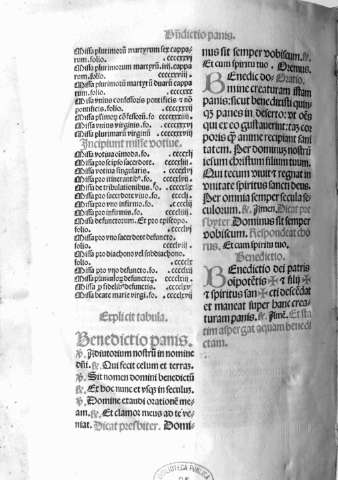 Bñdictio panis.
Missa plurimorũ martyrum sex cappa-
rum. folio. ccccxxvj
Missa plurimorũ martyrũ .iiij. cappa
rum. folio.
Missa plurimorũ martyrũ duarũ cappa
rum. folio.
Missa vnius confessoris pontificis ⁊ nõ
pontificis. folio.
Missa plurimoꝝ cõfessorũ. fo.
Missa vnius virginis. fo.
Missa plurimarũ virginũ
Incipiunt misse votiue.
Missa votiua eimoda. fo.
Missa pro seipso sacerdote.
Missa votiua singularis
Missa pro itinerantibꝰ. fo.
Missa de tribulationibus. fo.
Missa pro sacerdote viuo. fo.
Missa pro vno infirmo. fo.
Missa pro infirmis. fo.
Missa defunctorum. Et pro episcopo.
folio.
Missa pro vno sacerdote defuncto.
folio.
Missa pro diachono vel subdiachono.
folio.
Missa pro vno defuncto. fo.
Missa defunctoꝝ.
Missa ꝓ fidelibꝰ defunctis.
Missa beate marie virgi. fo.
Explicit tabula.
Benedictio panis.
℣. Adiutorium nostrũ in nomine
dñi. ℟. Qui fecit celum et terras.
℣. Sit nomen domini benedictũ
℟. Ex hoc nunc et vsqꝫ in seculus.
℣. Domine exaudi orationẽ me-
am. ℟. Et clamor meus ad te ve-
niat. Dicat presbiter. Domi-
nus sit semper vobiscum. ℟.
Et cum spiritu tuo. Oremus.
Benedic do- Oratio.
mine creaturam istam
panis: sicut benedixisti quin-
qꝫ panes in deserto: vt oẽs
qui ex eo gustauerint: taꝫ cor
poris qꝫ anime recipiant sani
tatem. Per dominuꝫ nostrũ
iesum christum filium tuum.
Qui tecum viuit ⁊ regnat in
vnitate spiritus sancti deus.
Per omnia semper secula se
culorum. ℟. Amen. Dicat pre
sbyter Dominus sit semper
vobiscum. Respondeat cho
rus. Et cum spiritu tuo.
Benedictio.
Benedictio dei patris
oĩpotẽtis ✠ et filij ✠
et spiritus san ✠ cti descẽdat
et maneat super hanc crea-
turam panis. ℟. Amẽ. Et sta
tim aspergat aquam benedi
ctam.
BIBLIOTECA PUBLICA